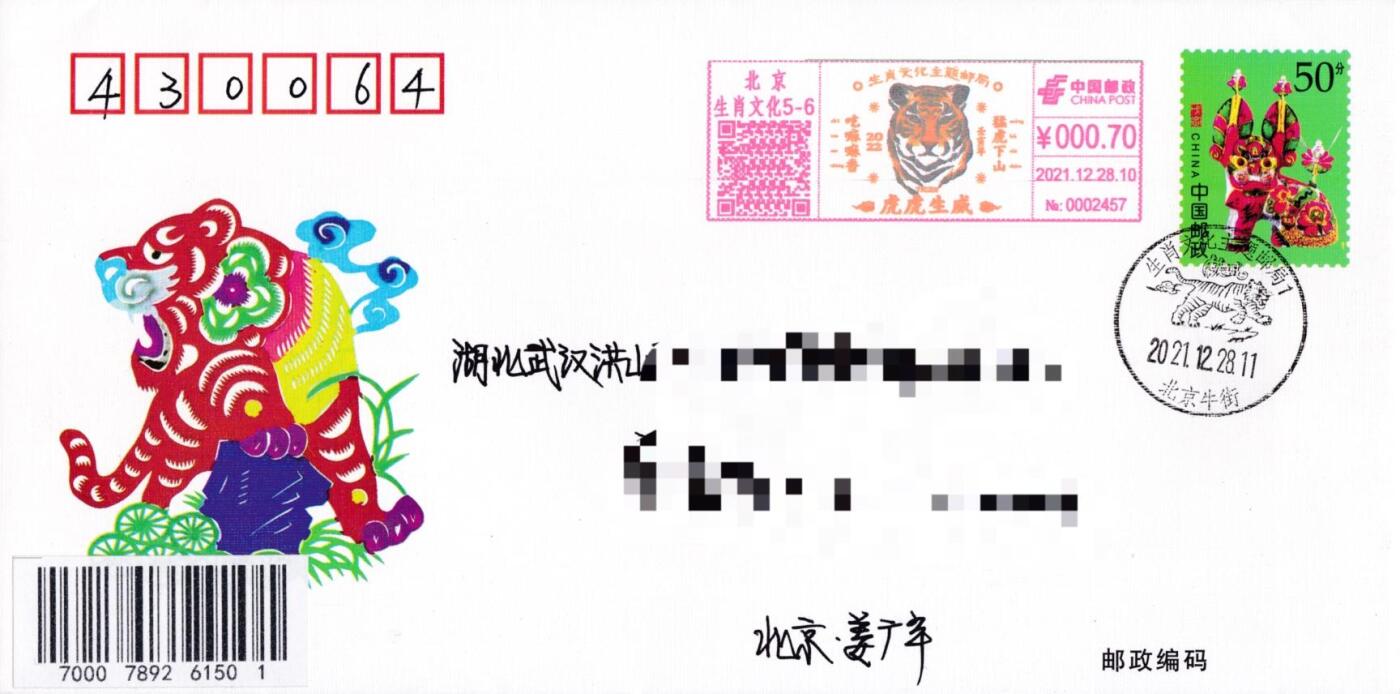 430064
北京
生肖文化5-6
生肖文化主题邮局
吃嘛嘛香
2022
壬寅年
猛虎下山
虎虎生威
中国邮政
CHINA POST
¥000.70
2021.12.28.10
№: 0002457
50分
CHINA
中国邮政
生肖文化主题邮局1
2021.12.28.11
北京牛街
湖北武汉洪山
北京·姜广年
邮政编码
7000 7892 6150 1